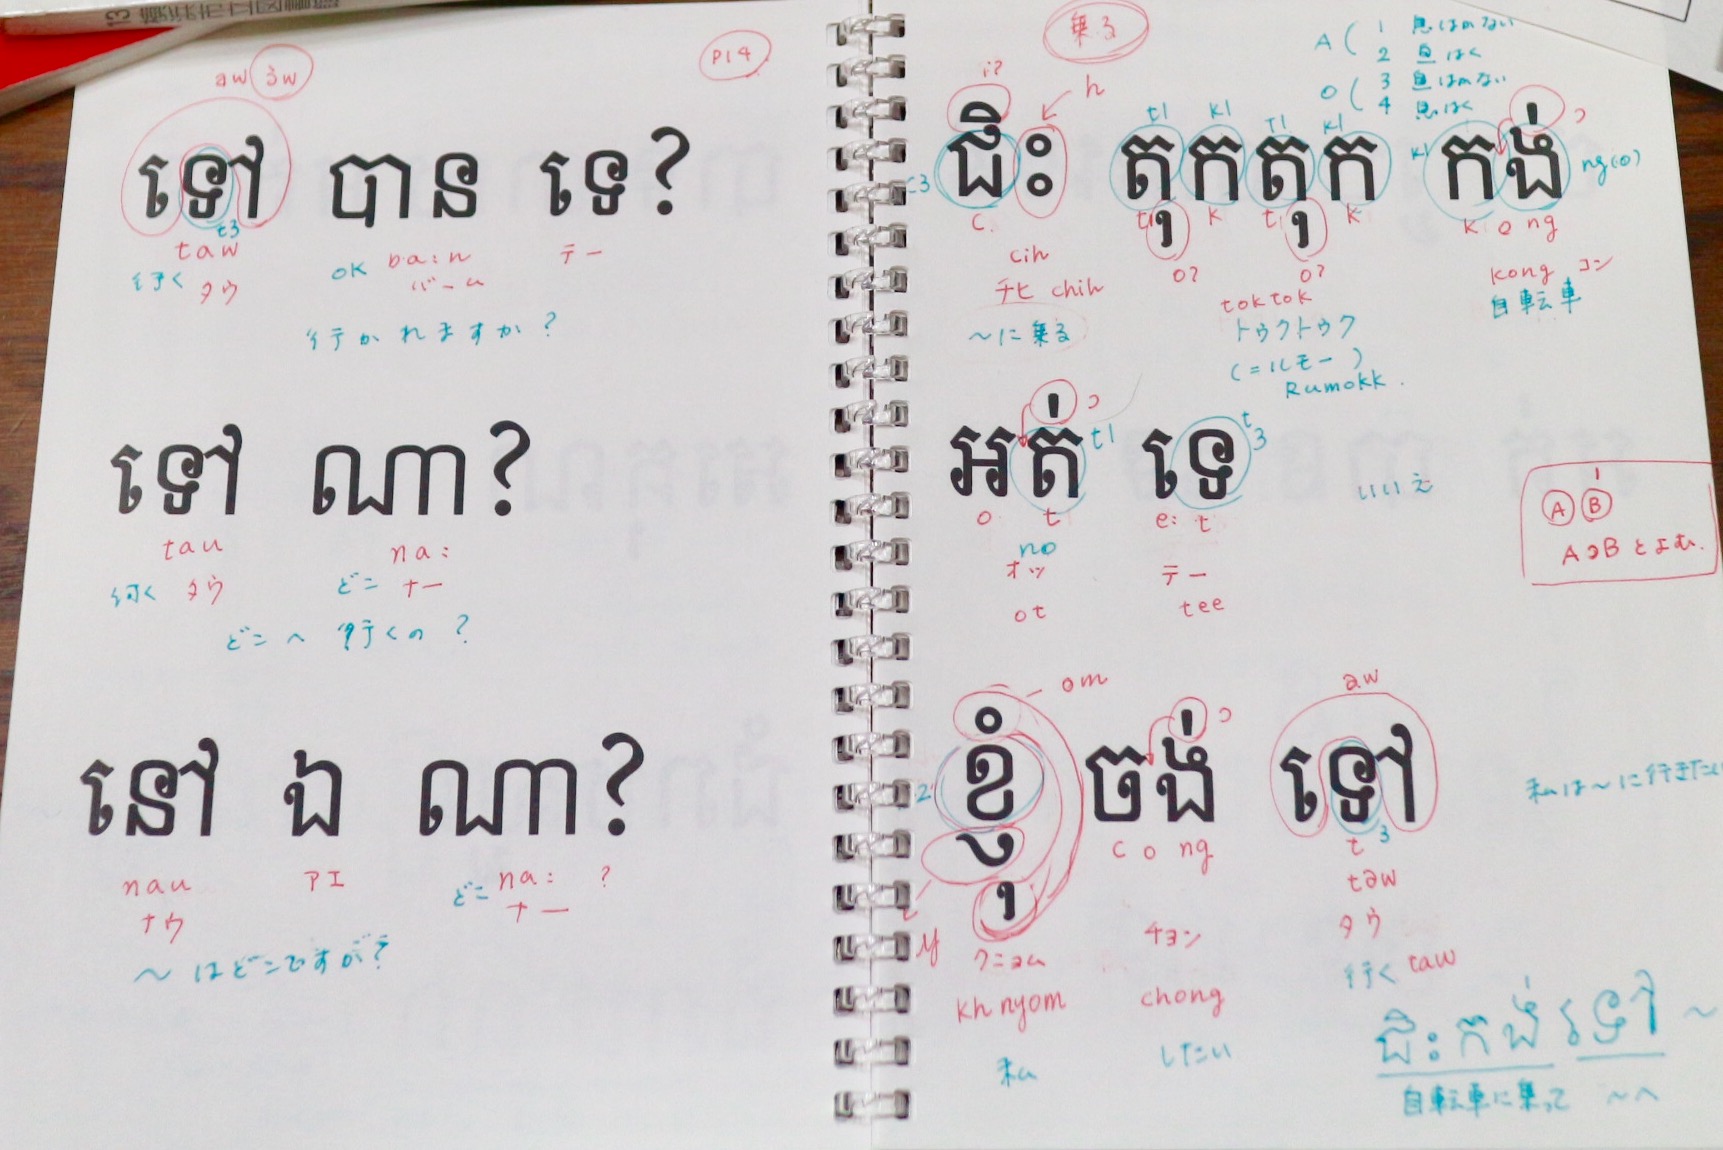 P14
aw ɜw
ទៅ បាន ទេ?
t3
taw ba:n テー
行く タウ OK バーん
行かれますか?
ទៅ ណា?
tau na:
行く タウ どこ ナー
どこへ 行くの?
នៅ ឯ ណា?
nau アエ どこ na: ?
ナウ ナー
〜はどこですか?
乗る
A ( 1 息はかない
2 息はく
O ( 3 息はかない
4 息はく
i? h
t1 k1 t1 k1 ɔ
ជិះ តុកតុក កង់
k1 ng(o)
c. t1 k t1 k k o ng
cih o? o? kong コン
チヒ chih toktok 自転車
〜に乗る トゥクトゥク
(=ルモー)
Rumokk.
ɔ
អត់ ទេ
t1 t3
いいえ
o t e: t
no
オッ テー
ot tee
A B
AɔB とよむ.
om ɔ aw
ខ្ញុំ ចង់ ទៅ
2
私は〜に行きたい
c o ng t 3
təw
y クニョム チョン タウ
khnyom chong 行く taw
私 したい
ជិះកង់ទៅ 〜
自転車に乗って 〜へ